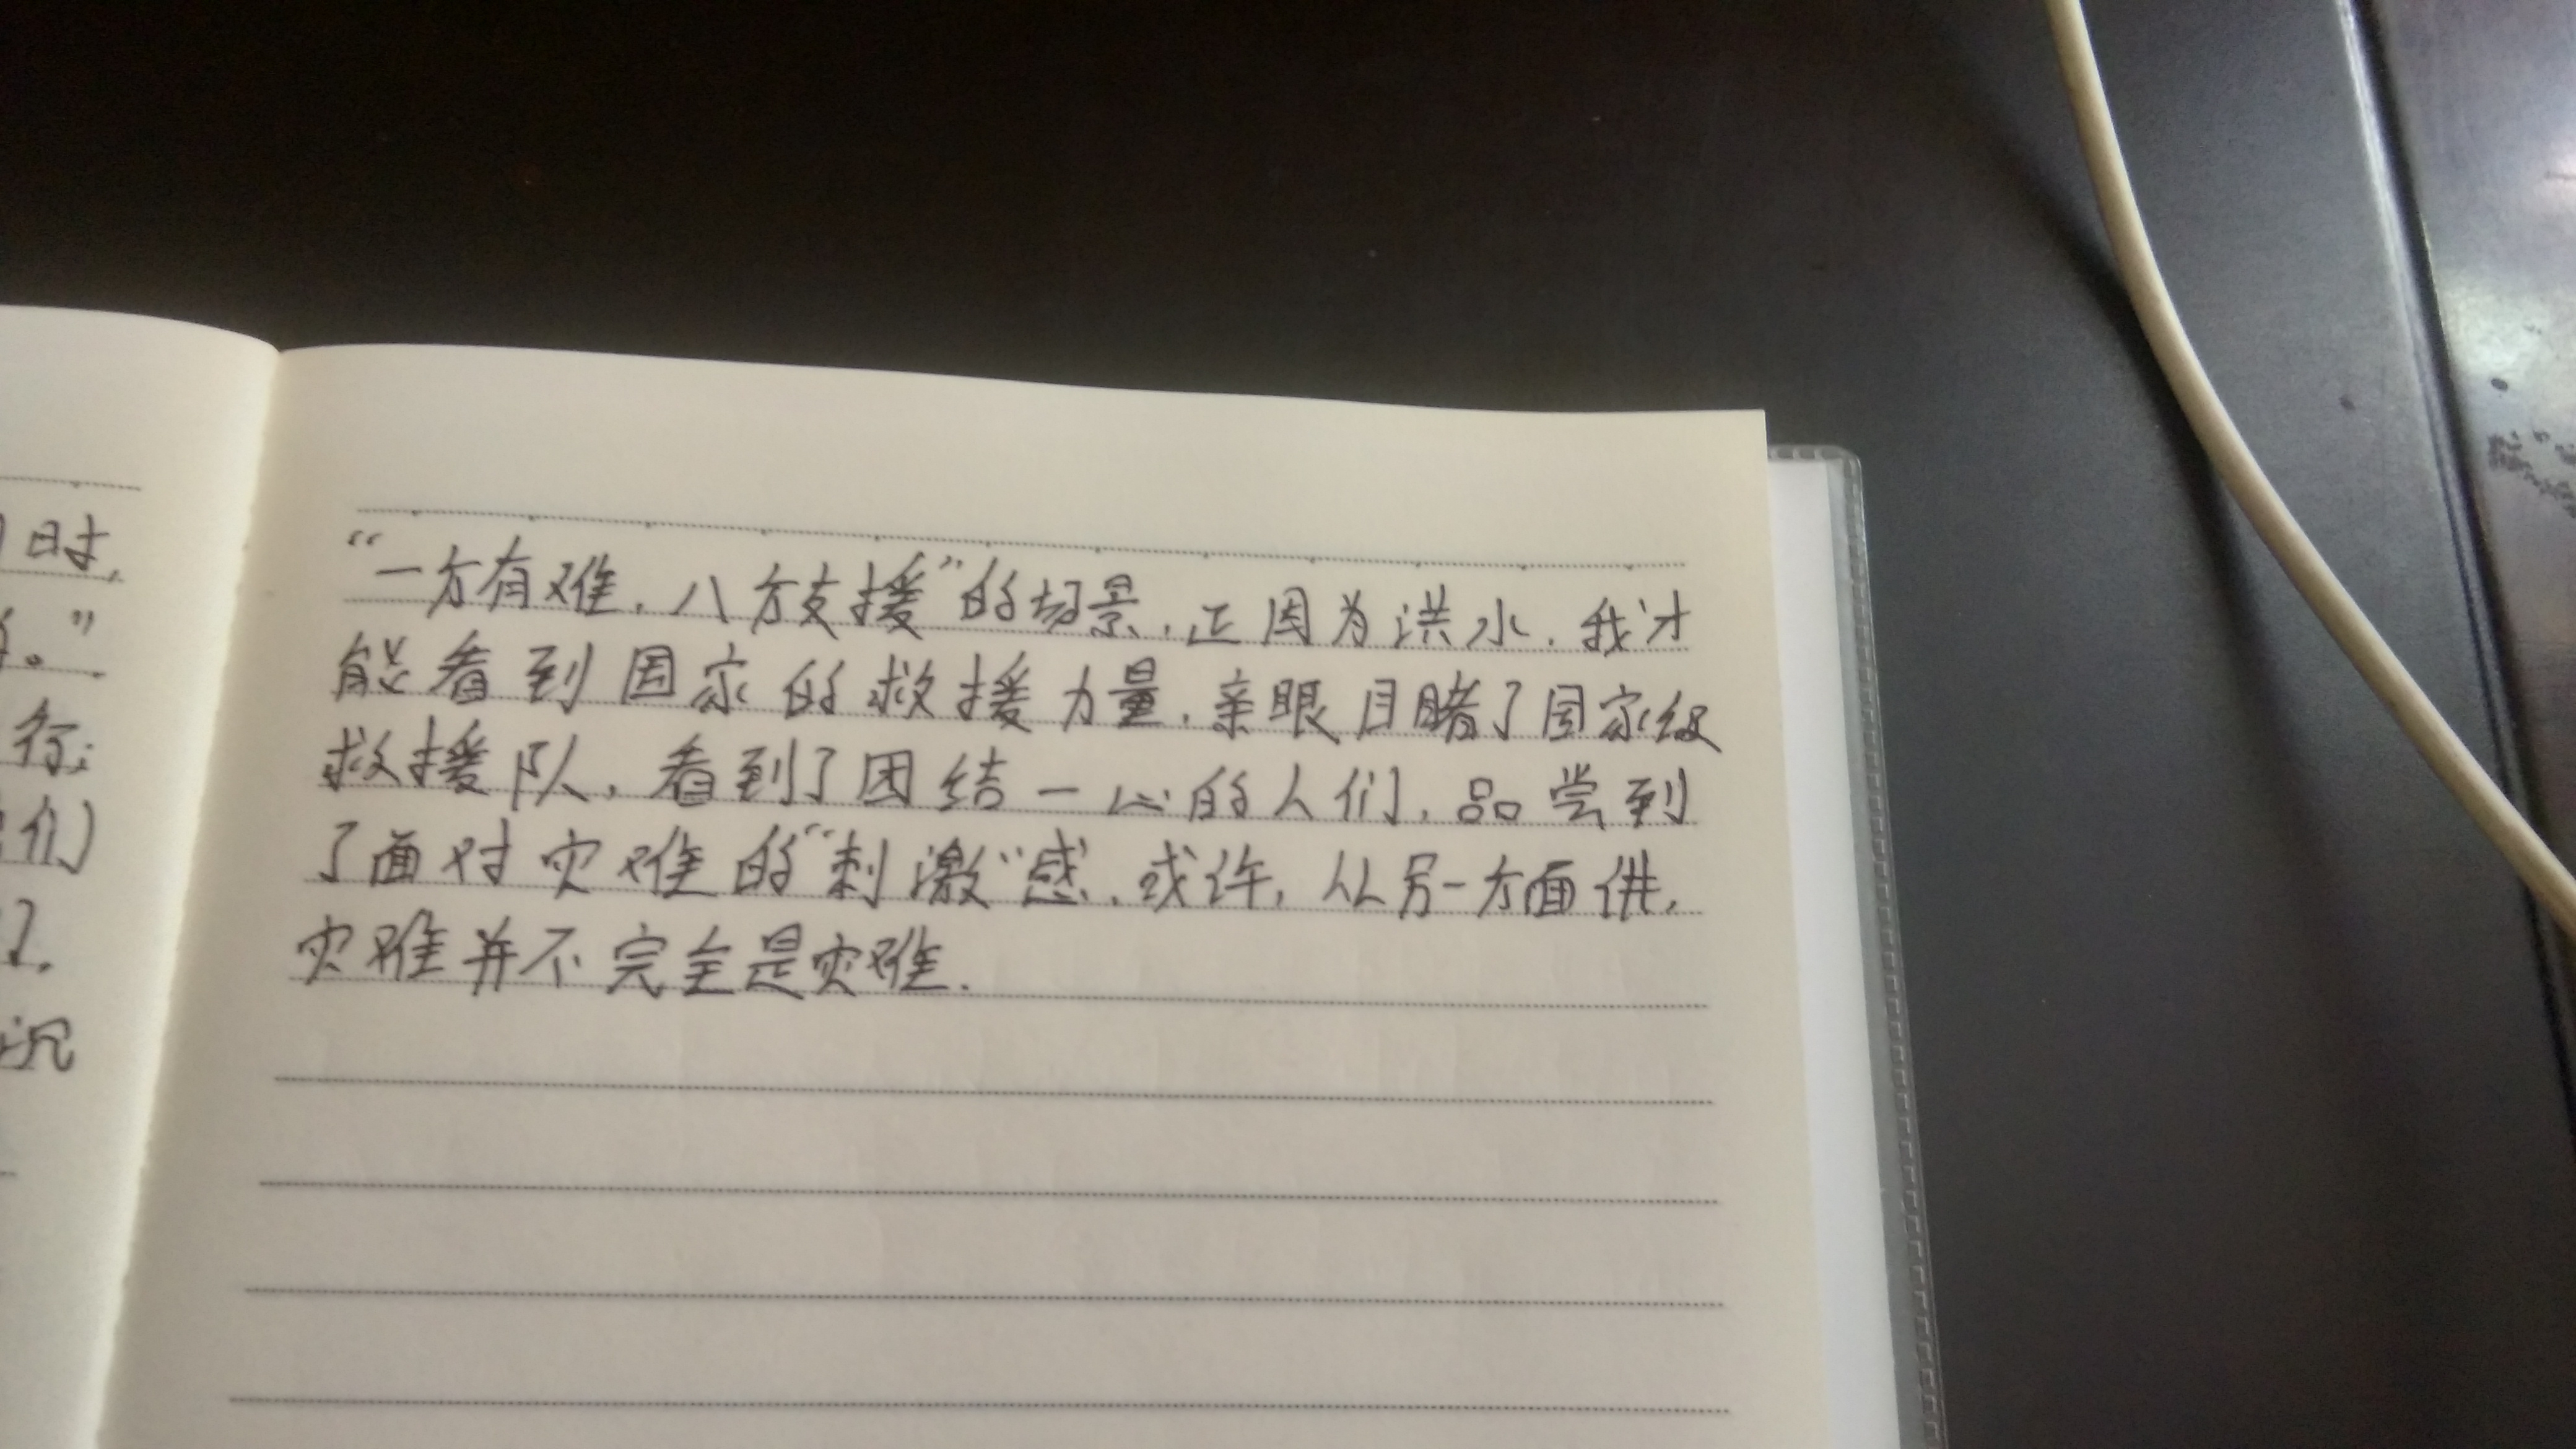 时,
。”
行;
们
沉
“一方有难,八方支援”的场景.正因为洪水.我才
能看到国家的救援力量.亲眼目睹了国家级
救援队,看到了团结一心的人们.品尝到
了面对灾难的“刺激”感.或许,从另一方面讲,
灾难并不完全是灾难.